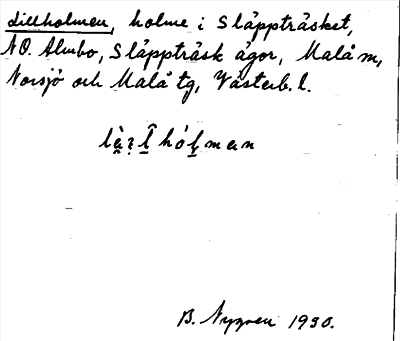 Lillholmen, holme i Släppträsket,
NO. Almbo, Släppträsk ägor, Malå m,
Norsjö och Malå tg, Västerb. l.
B. Nygren 1930.